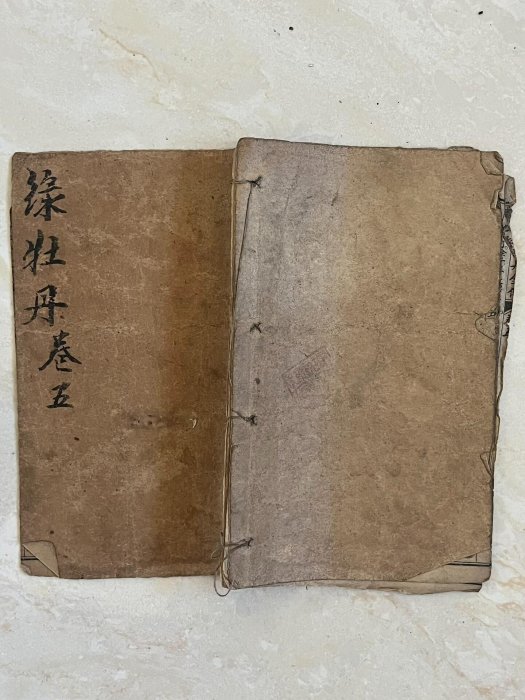 綠牡丹卷五